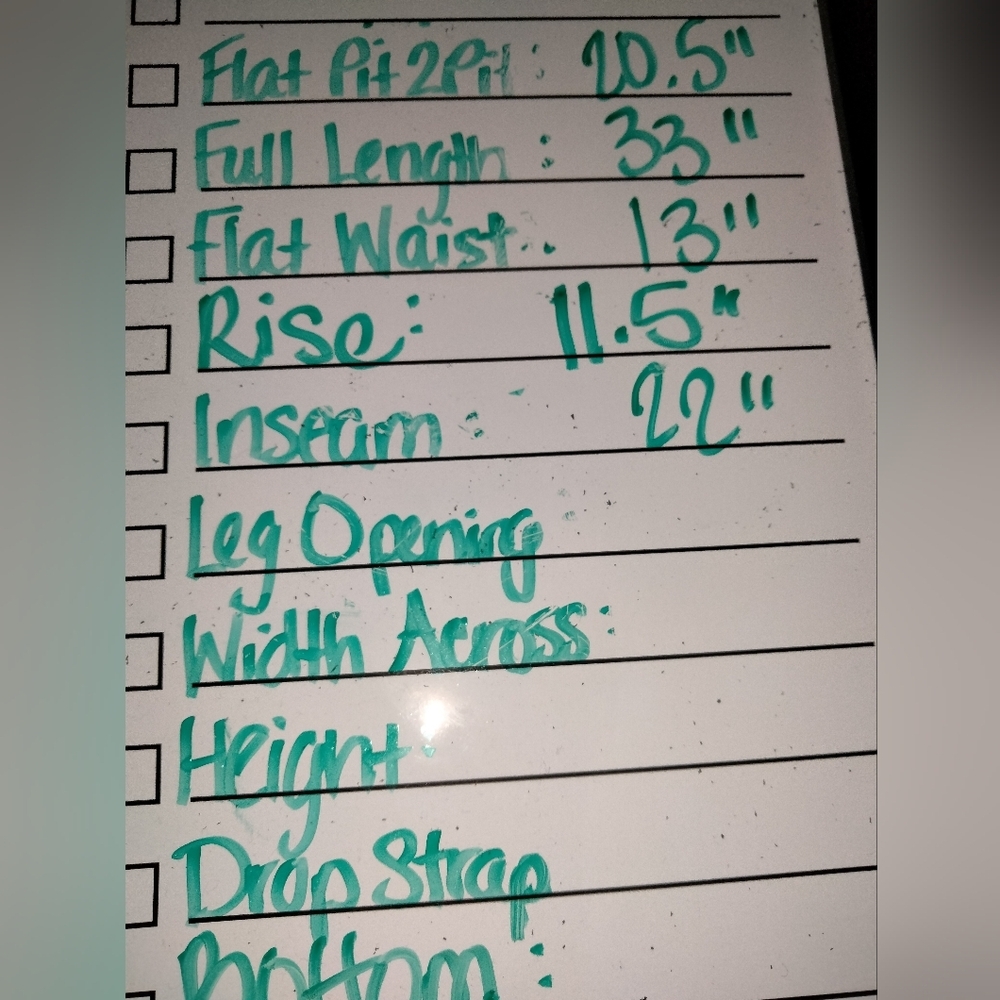 Flat Pit2Pit: 20.5"
Full Length: 33"
Flat Waist: 13"
Rise: 11.5"
Inseam: 22"
Leg Opening
Width Across:
Height:
Drop Strap
Bottom: